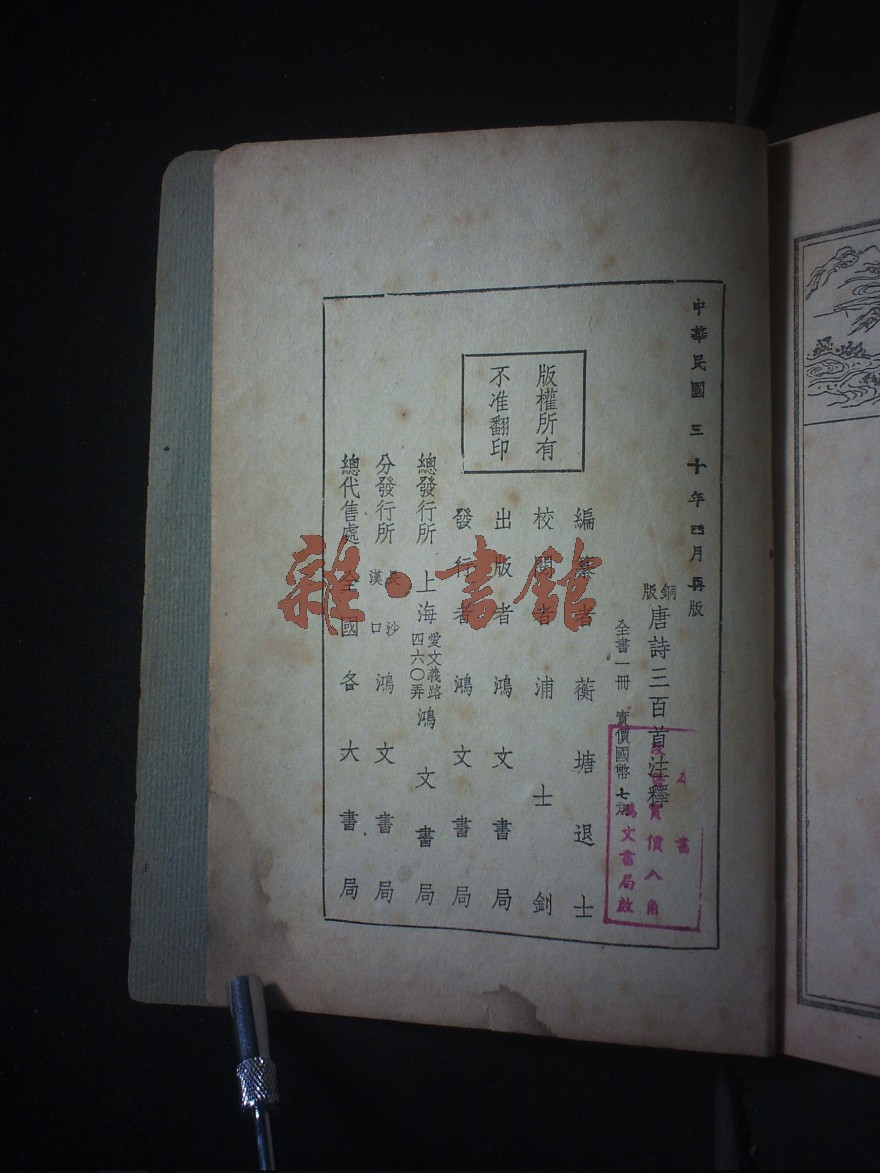 中華民國三十年四月再版
銅版唐詩三百首注釋
全書一冊 實價國幣七角
編纂者 蘅塘退士
校閱者 浦士釗
出版者 鴻文書局
發行者 鴻文書局
總發行所 上海愛文義路四六〇弄鴻文書局
分發行所 長沙漢口 鴻文書局
總代售處 全國各大書局
版權所有
不准翻印
本書
實價八角
鴻文書局啟
雜·書館